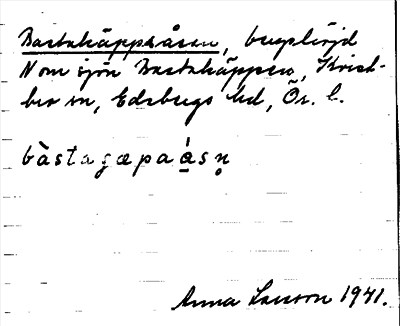 Bastukäppsåsen, bergshöjd
N om sjön Bastukäppen, Kvist-
bro sn, Edsbergs hd, Ör. l.
bàstagæpaá̱sn̥
Anna Larsson 1941.